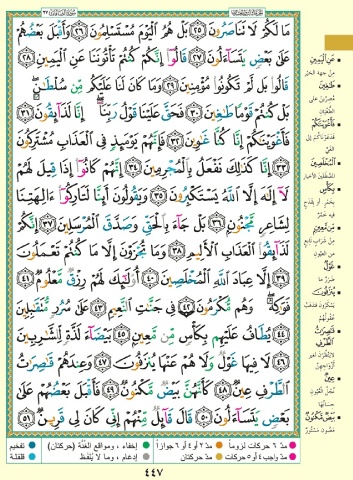 مَا لَكُمْ لَا تَنَاصَرُونَ ٢٥ بَلْ هُمُ الْيَوْمَ مُسْتَسْلِمُونَ ٢٦ وَأَقْبَلَ بَعْضُهُمْ
عَلَىٰ بَعْضٍ يَتَسَاءَلُونَ ٢٧ قَالُوا إِنَّكُمْ كُنتُمْ تَأْتُونَنَا عَنِ الْيَمِينِ ٢٨
قَالُوا بَل لَّمْ تَكُونُوا مُؤْمِنِينَ ٢٩ وَمَا كَانَ لَنَا عَلَيْكُم مِّن سُلْطَانٍ
بَلْ كُنتُمْ قَوْمًا طَاغِينَ ٣٠ فَحَقَّ عَلَيْنَا قَوْلُ رَبِّنَا إِنَّا لَذَائِقُونَ ٣١
فَأَغْوَيْنَاكُمْ إِنَّا كُنَّا غَاوِينَ ٣٢ فَإِنَّهُمْ يَوْمَئِذٍ فِي الْعَذَابِ مُشْتَرِكُونَ
٣٣ إِنَّا كَذَٰلِكَ نَفْعَلُ بِالْمُجْرِمِينَ ٣٤ إِنَّهُمْ كَانُوا إِذَا قِيلَ لَهُمْ
لَا إِلَٰهَ إِلَّا اللَّهُ يَسْتَكْبِرُونَ ٣٥ وَيَقُولُونَ أَئِنَّا لَتَارِكُوا آلِهَتِنَا
لِشَاعِرٍ مَّجْنُونٍ ٣٦ بَلْ جَاءَ بِالْحَقِّ وَصَدَّقَ الْمُرْسَلِينَ ٣٧ إِنَّكُمْ
لَذَائِقُو الْعَذَابِ الْأَلِيمِ ٣٨ وَمَا تُجْزَوْنَ إِلَّا مَا كُنتُمْ تَعْمَلُونَ
٣٩ إِلَّا عِبَادَ اللَّهِ الْمُخْلَصِينَ ٤٠ أُولَٰئِكَ لَهُمْ رِزْقٌ مَّعْلُومٌ ٤١
فَوَاكِهُ وَهُم مُّكْرَمُونَ ٤٢ فِي جَنَّاتِ النَّعِيمِ ٤٣ عَلَىٰ سُرُرٍ مُّتَقَابِلِينَ
٤٤ يُطَافُ عَلَيْهِم بِكَأْسٍ مِّن مَّعِينٍ ٤٥ بَيْضَاءَ لَذَّةٍ لِّلشَّارِبِينَ
٤٦ لَا فِيهَا غَوْلٌ وَلَا هُمْ عَنْهَا يُنزَفُونَ ٤٧ وَعِندَهُمْ قَاصِرَاتُ
الطَّرْفِ عِينٌ ٤٨ كَأَنَّهُنَّ بَيْضٌ مَّكْنُونٌ ٤٩ فَأَقْبَلَ بَعْضُهُمْ عَلَىٰ
بَعْضٍ يَتَسَاءَلُونَ ٥٠ قَالَ قَائِلٌ مِّنْهُمْ إِنِّي كَانَ لِي قَرِينٌ ٥١
عَنِ الْيَمِينِ
من جهة الخير
طَاغِينَ
فَأَغْوَيْنَاكُمْ
الْمُخْلَصِينَ
بِكَأْسٍ
مِّن مَّعِينٍ
غَوْلٌ
يُنزَفُونَ
قَاصِرَاتُ الطَّرْفِ
عِينٌ
بَيْضٌ مَّكْنُونٌ
مصون مستور
مدّ ٦ حركات لزوماً
مدّ ٢ أو ٤ أو ٦ جوازاً
إخفاء، ومواقع الغنّة (حركتان)
تفخيم
مدّ واجب ٤ أو ٥ حركات
مدّ حركتان
إدغام، وما لا يُلفظ
قلقلة
٤٤٧